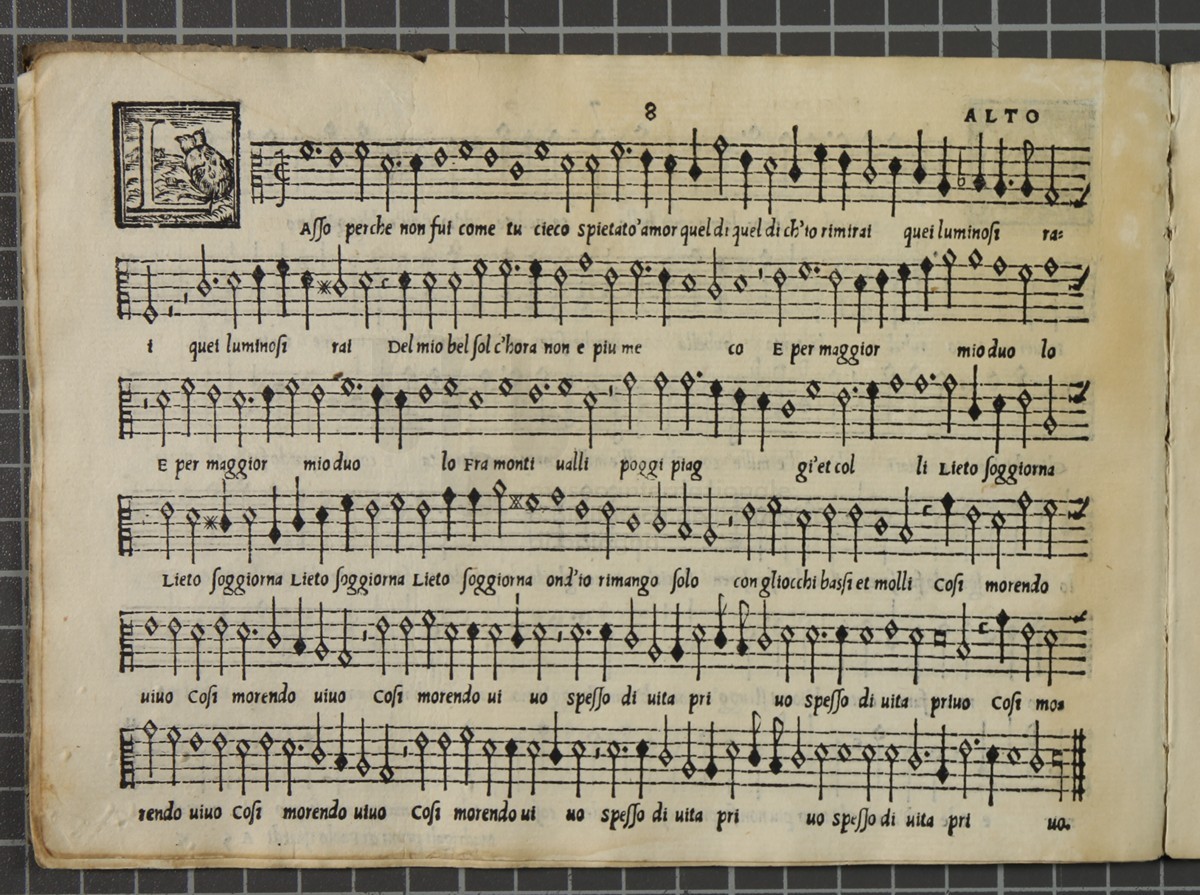 8 ALTO
LAſſo perche non fui come tu cieco spietato'amor quel di quel di ch'io rimirai quei luminoſi ra=
i quei luminoſi rai Del mio bel ſol c'hora non e piu me co E per maggior mio duo lo
E per maggior mio duo lo Fra monti ualli poggi piag gi'et col li Lieto ſoggiorna
Lieto ſoggiorna Lieto ſoggiorna Lieto ſoggiorna ond'io rimango ſolo con gliocchi baſſi et molli Coſi morendo
uiuo Coſi morendo uiuo Coſi morendo ui uo speſſo di uita pri uo speſſo di uita priuo Coſi mo=
rendo uiuo Coſi morendo uiuo Coſi morendo ui uo speſſo di uita pri uo speſſo di uita pri uo.